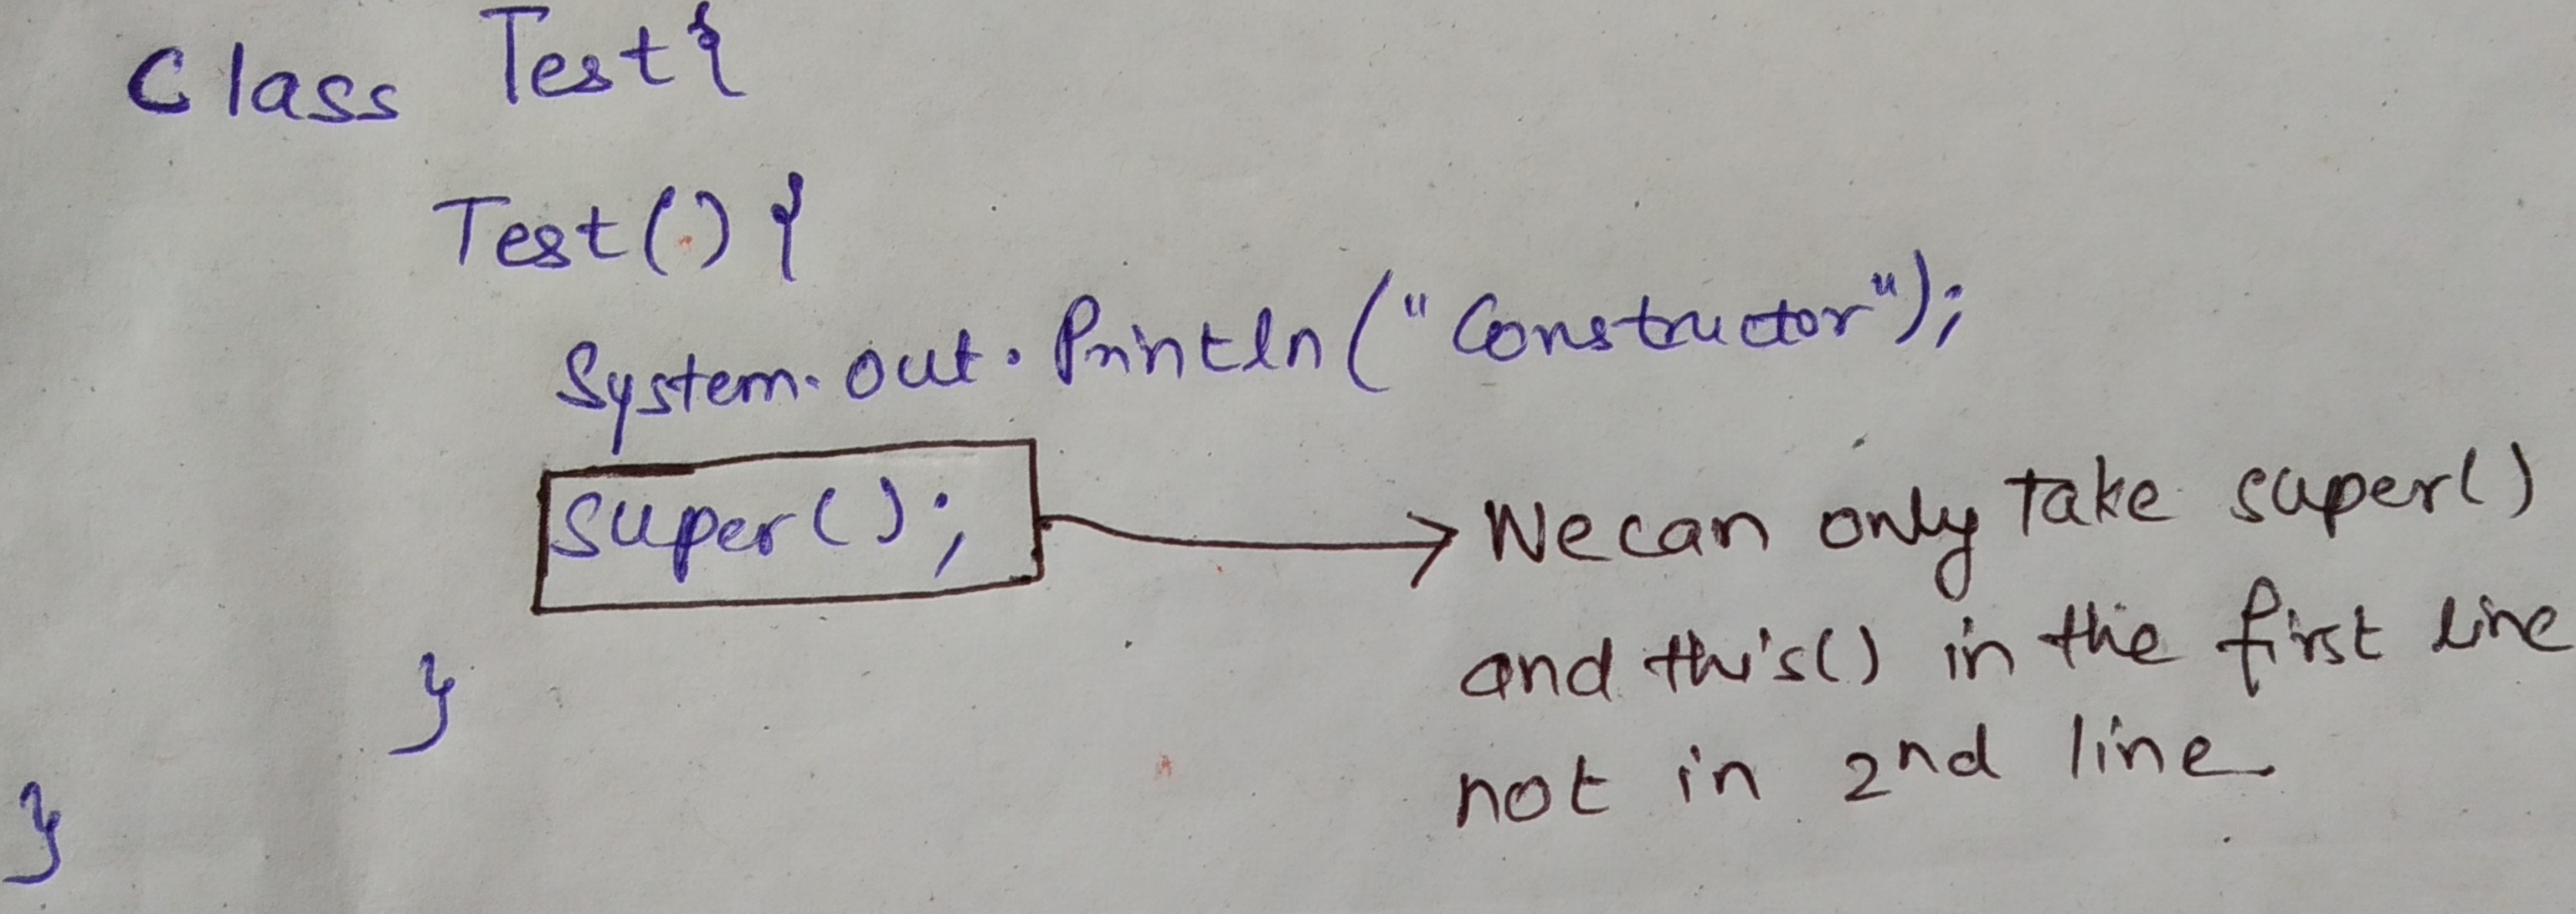 Class Test{
Test() {
System.out.Println("Constructor");
super();
→ We can only take super()
and this() in the first line
not in 2nd line
}
}